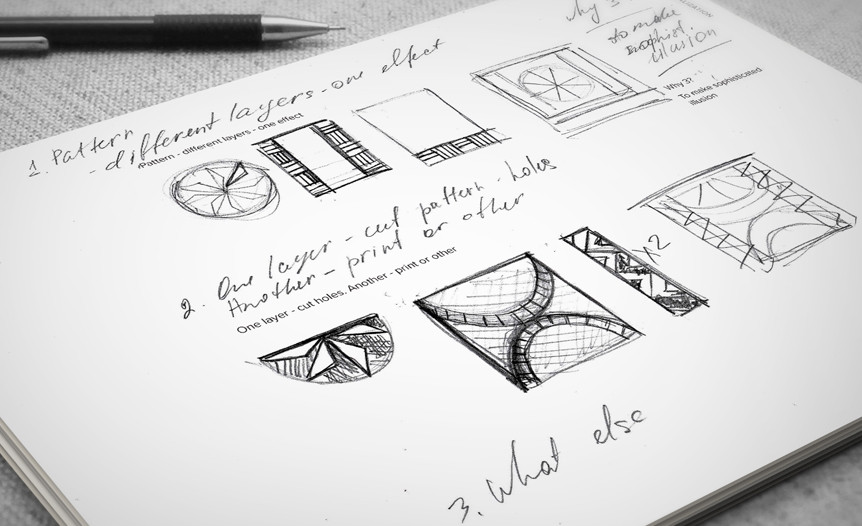 1. Pattern
- different layers - one effect
Pattern - different layers - one effect
Why
to make
sophist.
illusion
Why 3?
To make sophisticated
illusion
2. One layer - cut pattern - holes
Another - print or other
One layer - cut holes. Another - print or other
x2
3. What else